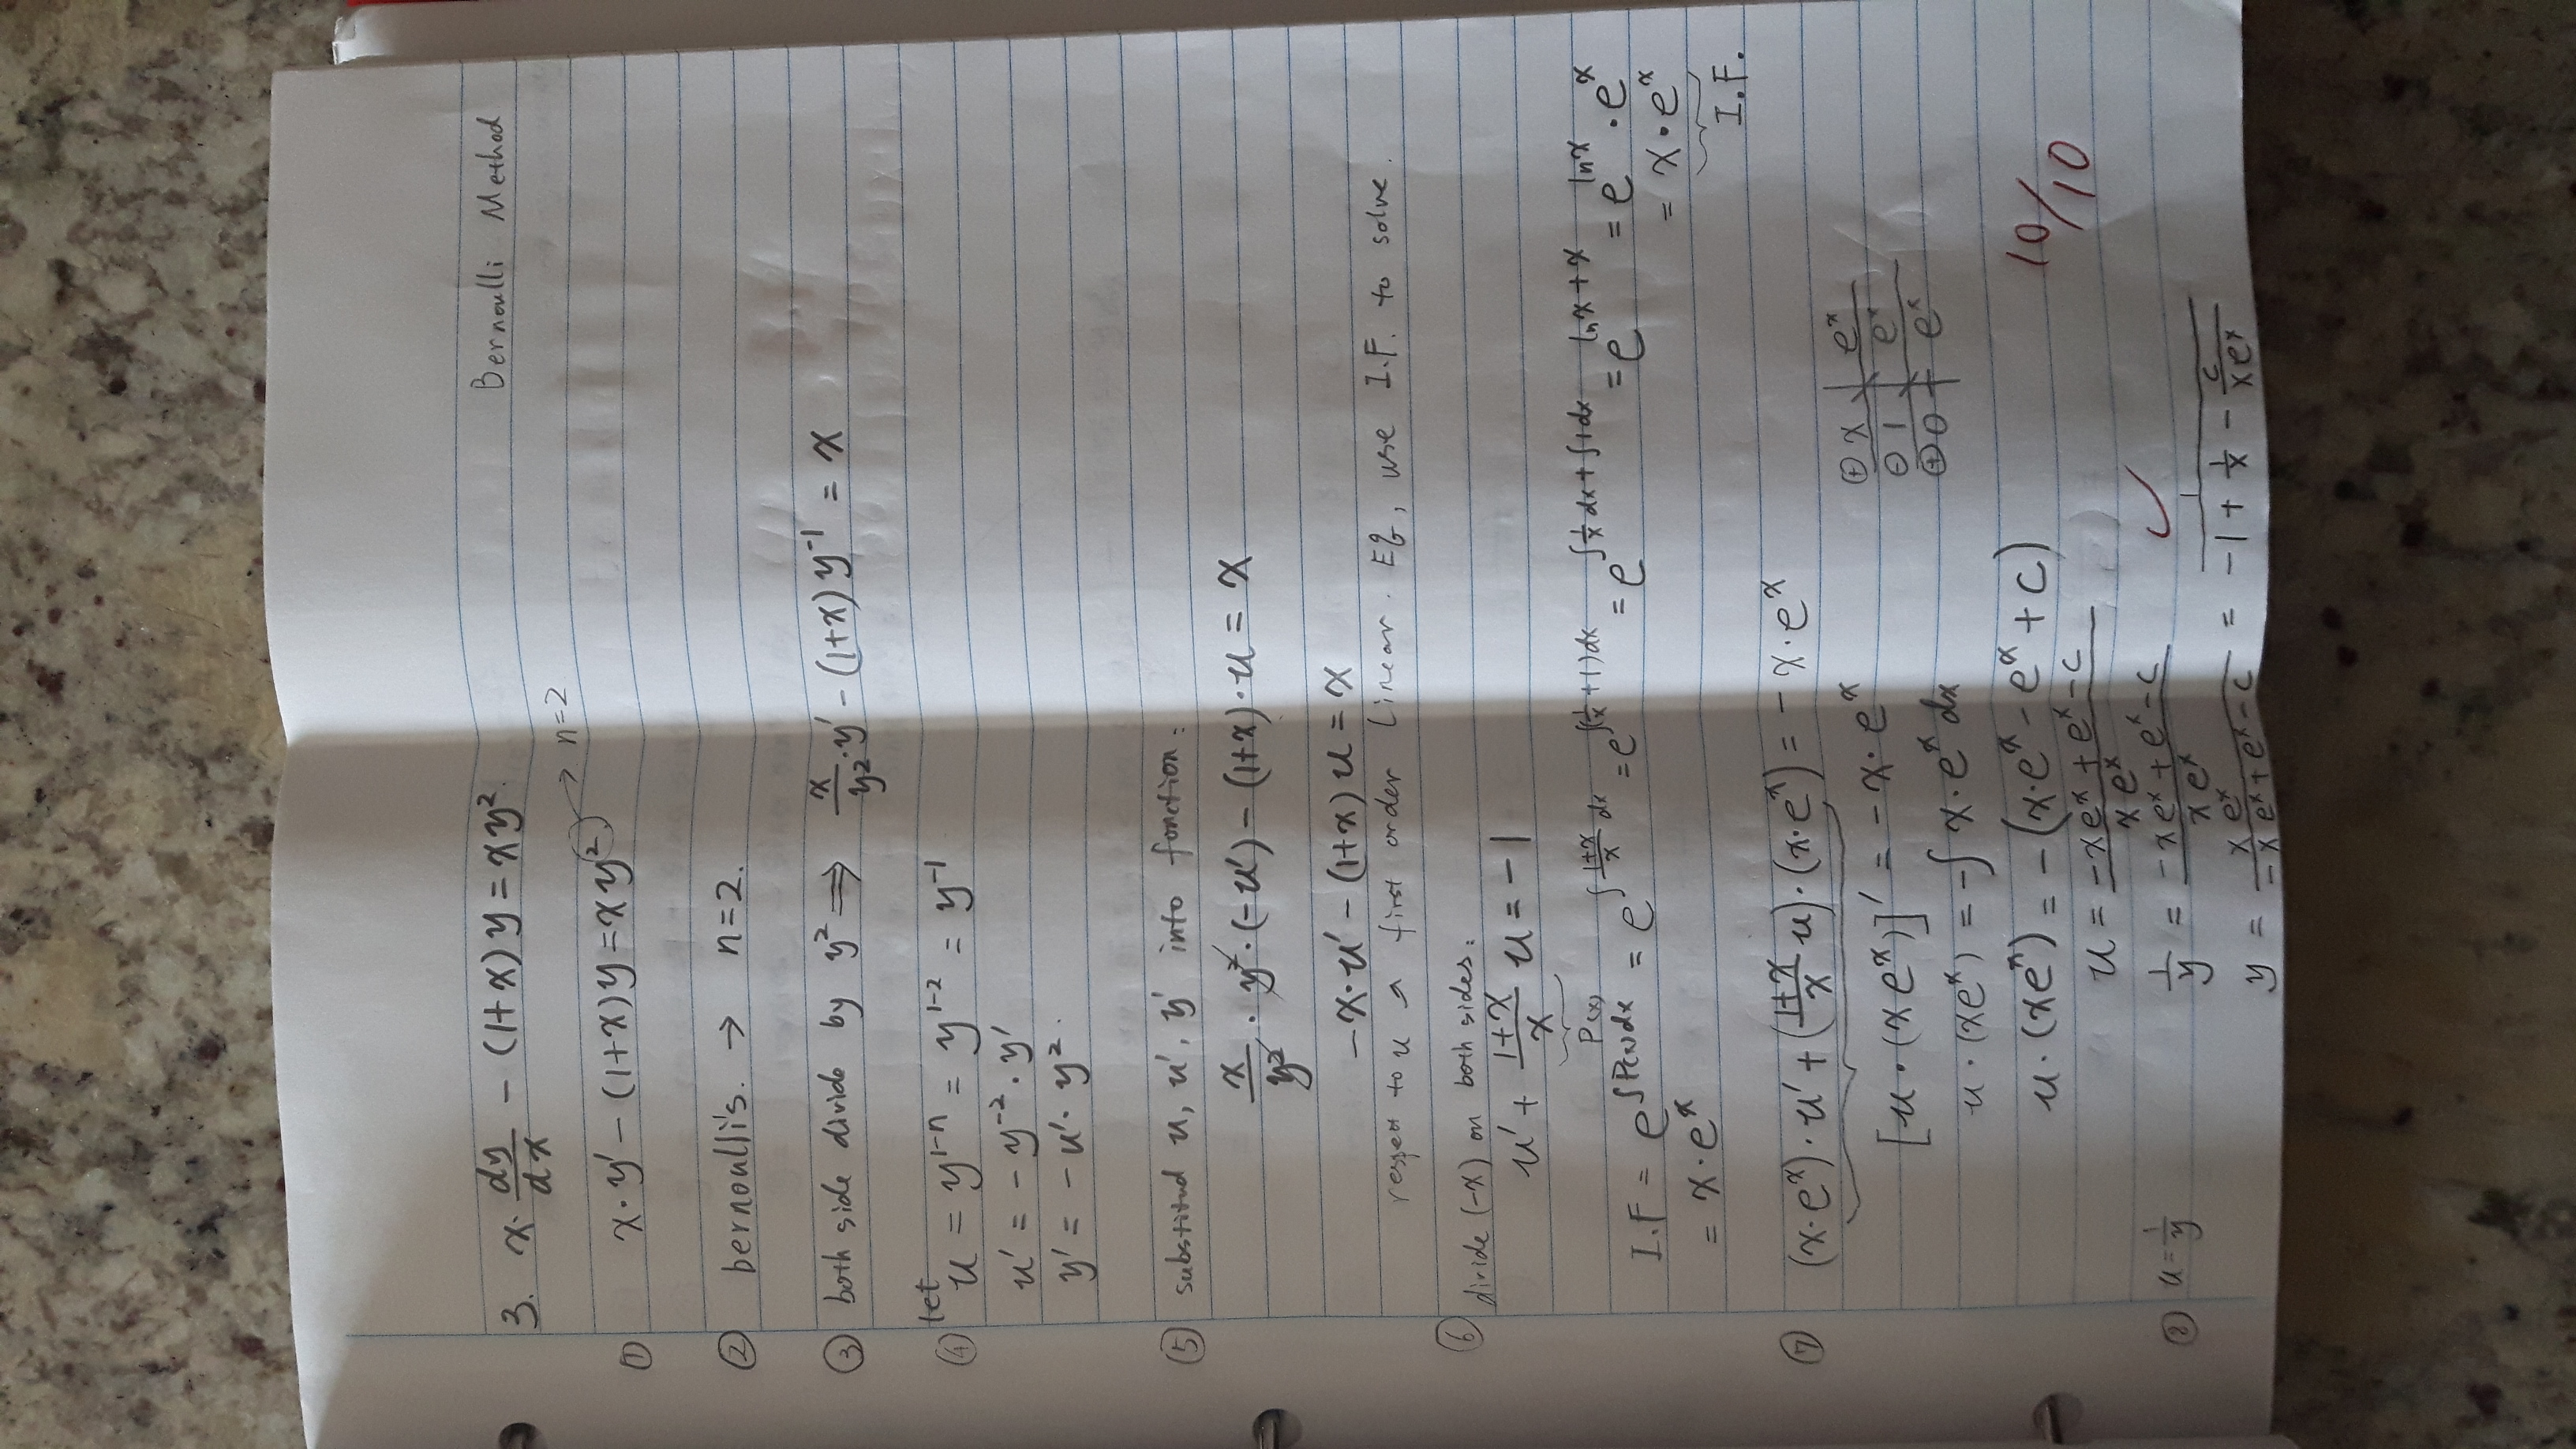 Bernoulli Method
3. x·dy/dx − (1+x)y = xy².
① x·y' − (1+x)y = xy² → n=2
② bernoulli's. → n=2.
③ both side divide by y² ⟹ x/y²·y' − (1+x)y⁻¹ = x
④ let u = y¹⁻ⁿ = y¹⁻² = y⁻¹
u' = −y⁻²·y'
y' = −u'·y².
⑤ substitud u, u', y' into fonction:
x/y²·y²·(−u') − (1+x)·u = x
−x·u' − (1+x)u = x
respect to u ↗ first order Linear. Eq, use I.F. to solve.
⑥ divide (−x) on both sides:
u' + (1+x)/x u = −1
P(x)
I.F = e^∫P(x)dx = e^∫(1+x)/x dx = e^∫(1/x+1)dx = e^∫1/x dx+∫1dx = e^lnx+x = e^lnx·e^x
= x·e^x = x·e^x
I.F.
⑦ (x·e^x)·u' + ((1+x)/x u)·(x·e^x) = −x·e^x
[u·(xe^x)]' = −x·e^x ⊕ x e^x
⊖ 1 e^x
⊕ 0 e^x
u·(xe^x) = −∫x·e^x dx
u·(xe^x) = −(x·e^x − e^x + C)
10/10
u = (−xe^x + e^x − C)/(xe^x)
⑧ u = 1/y 1/y = (−xe^x + e^x − C)/(xe^x) ✓
y = (xe^x)/(−xe^x + e^x − C) = 1/(−1 + 1/x − C/(xe^x))